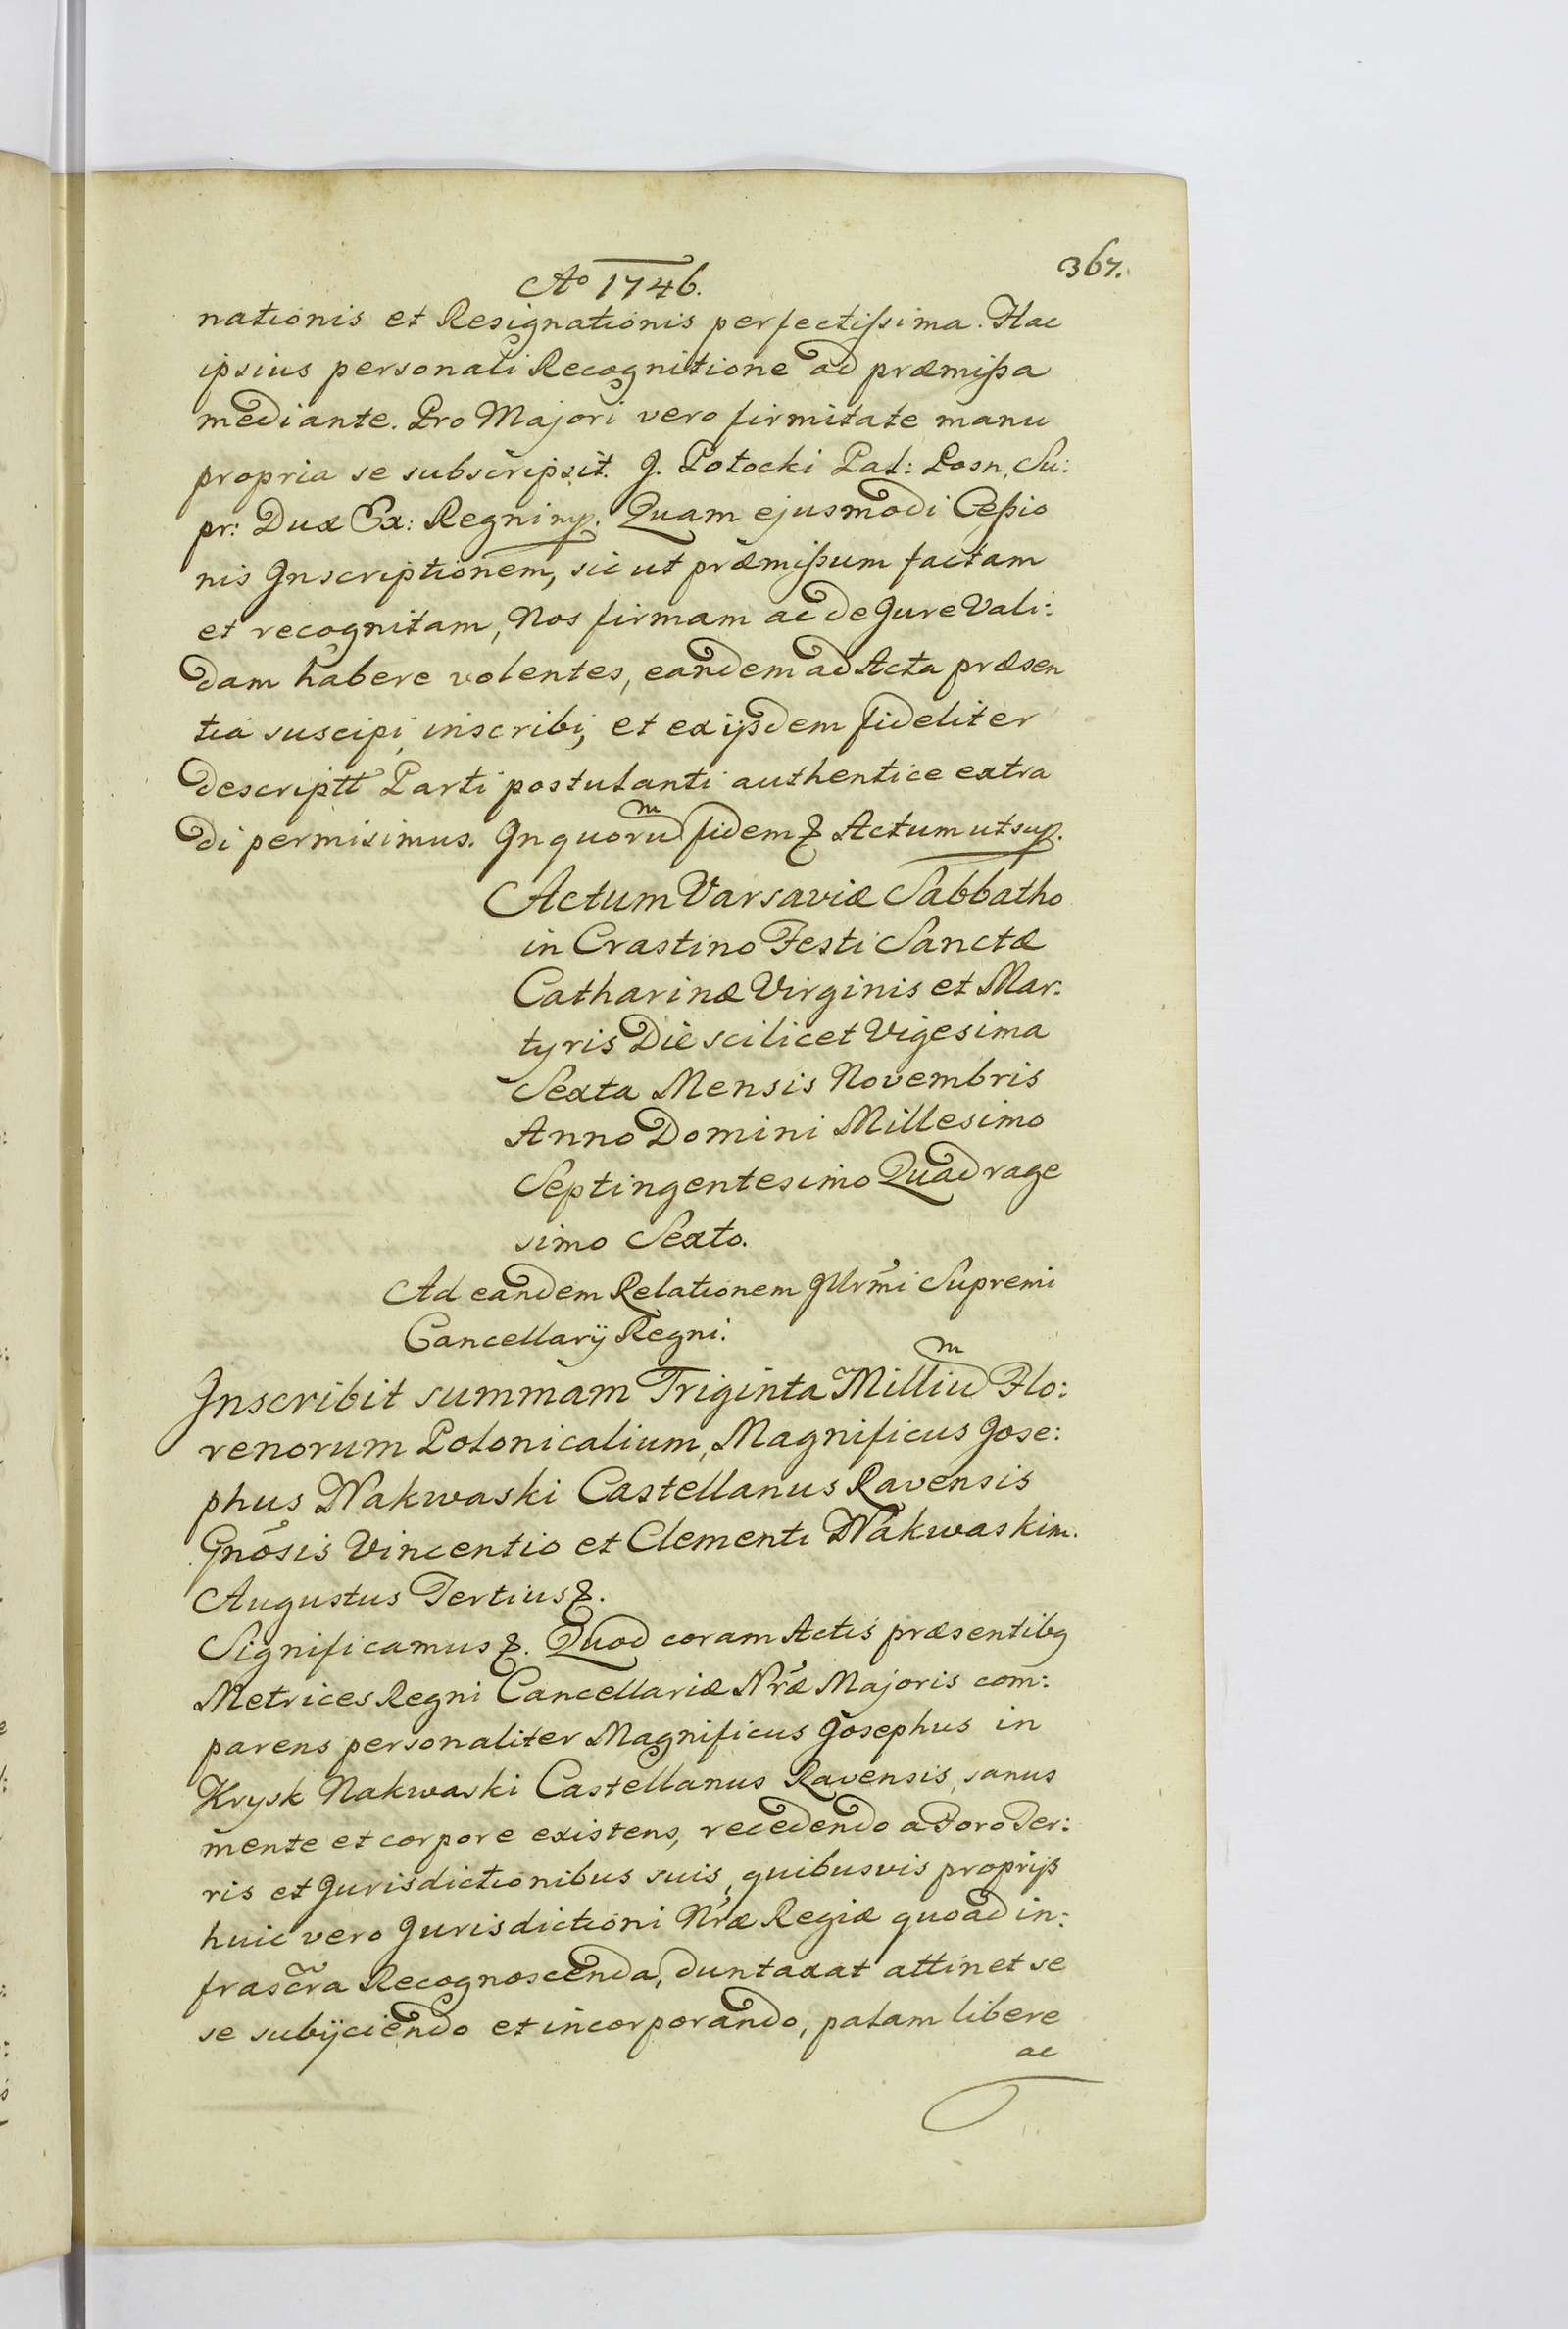 367.
Aº 1746.
nationis et Resignationis perfectißima. Hac
ipsius personali Recognitione ad præmißa
mediante. Pro Majori vero firmitate manu
propria se subscripsit. J. Potocki Pal: Posn, Su:
pr: Dux Ex: Regni mp. Quam ejusmodi Ceßio
nis Inscriptionem, sic ut præmißum factam
et recognitam, Nos firmam ac de Jure Vali:
dam habere volentes, eandem ad Acta præsen
tia suscipi, inscribi, et ex ijsdem fideliter
descriptt Parti postulanti authentice extra
di permisimus. In quorum fidem & Actum ut sup.
Actum Varsaviæ Sabbatho
in Crastino Festi Sanctæ
Catharinæ Virginis et Mar:
tyris Die scilicet Vigesima
Sexta Mensis Novembris
Anno Domini Millesimo
Septingentesimo Quadrage
simo Sexto.
Ad eandem Relationem Illrmi Supremi
Cancellarij Regni.
Inscribit summam Triginta Millium Flo:
renorum Polonicalium, Magnificus Jose:
phus Nakwaski Castellanus Ravensis
Gnosis Vincentio et Clementi Nakwaskim.
Augustus Tertius &.
Significamus &. Quod coram Actis præsentibg
Metrices Regni Cancellariæ Nræ Majoris com:
parens personaliter Magnificus Josephus in
Krysk Nakwaski Castellanus Ravensis, sanus
mente et corpore existens, recedendo a Foro Ter:
ris et Jurisdictionibus suis, quibusvis proprijs
huic vero Jurisdictioni Nræ Regiæ quoad in:
frascra Recognoscenda, duntaxat attinet se
se subijciendo et incorporando, palam libere
ac